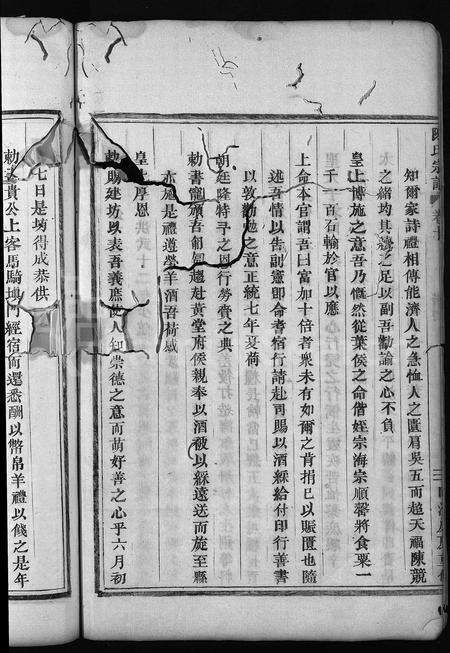 陳氏宗譜
知爾家詩禮相傳能濟人之急恤人之匱肩吳五而超天福陳競
太之緒均其濟之足以副吾勸諭之心不負
皇上博施之意吾乃慨然從葉侯之命偕姪宗海宗順罄將食粟一
千一百石輸於官以應
上命本官謂吾曰富加十倍者衆未有如爾之肯捐已以賑匱也隨
述吾情以告副憲即命耆宿行請赴司賜以酒綵給付印行善書
以敦勸勉之意正統七年夏荷
朝廷隆特予之恩行勞賚之典
勅書寵頒吾匍匐趨赴黃堂府侯親奉以酒被以綵遠送而旋至縣
亦施是禮道榮羊酒吾荷感
皇上厚恩
勅賜建坊以表吾義庶使人知崇德之意而萌好善之心乎六月初
七日是坊得成恭供
勅 貴公上客馬騎 門經宿而還悉酬以幣帛羊禮以餞之是年